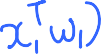 x₁ᵀw₁)